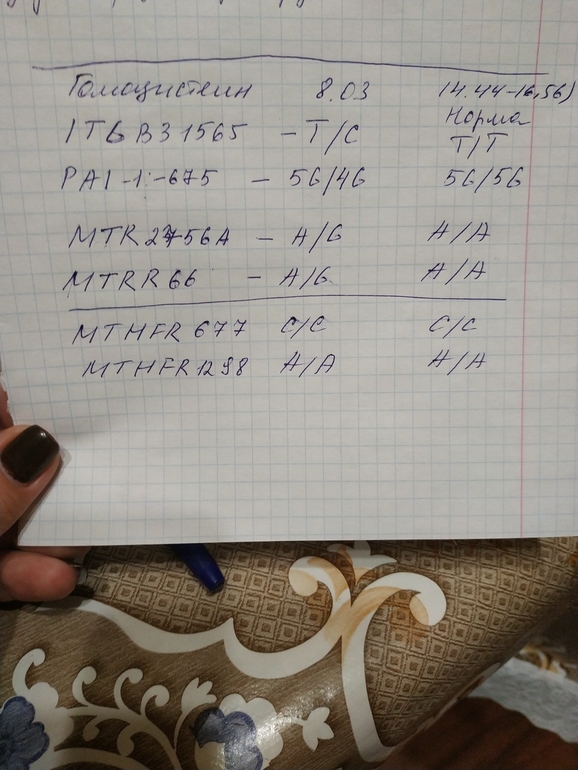 Гомоцистеин 8.03 (4.44-16,56)
Норма
ITGB31565 - T/C T/T
PAI-1:-675 - 5G/4G 5G/5G
MTR2756A - A/G A/A
MTRR66 - A/G A/A
MTHFR 677 C/C C/C
MTHFR1298 A/A A/A